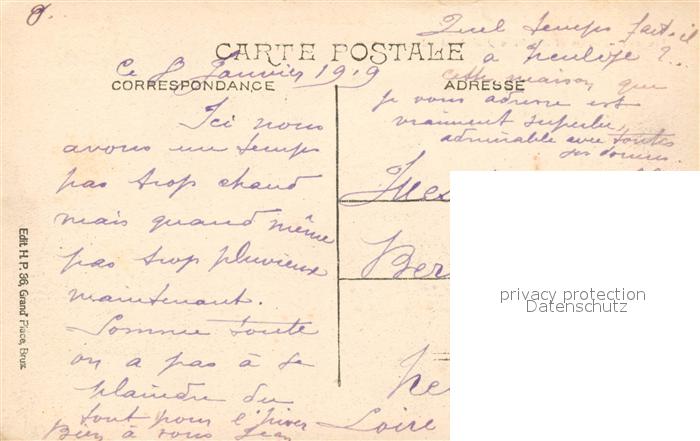 Quel temps fait-il
à
CARTE POSTALE
Ce 8 Janvier 1919
CORRESPONDANCE
ADRESSE
cette maison que
je vous adresse est
vraiment superbe,
admirable avec toutes
Ici nous
avons un temps
pas trop chaud
mais quand même
pas trop pluvieux
maintenant.
Somme toute
on a pas à se
plaindre du
tout pour l'hiver
Bien à vous Jean
Ber
Loire
Edit. H. P. 36, Grand' Place, Brux.
privacy protection
Datenschutz